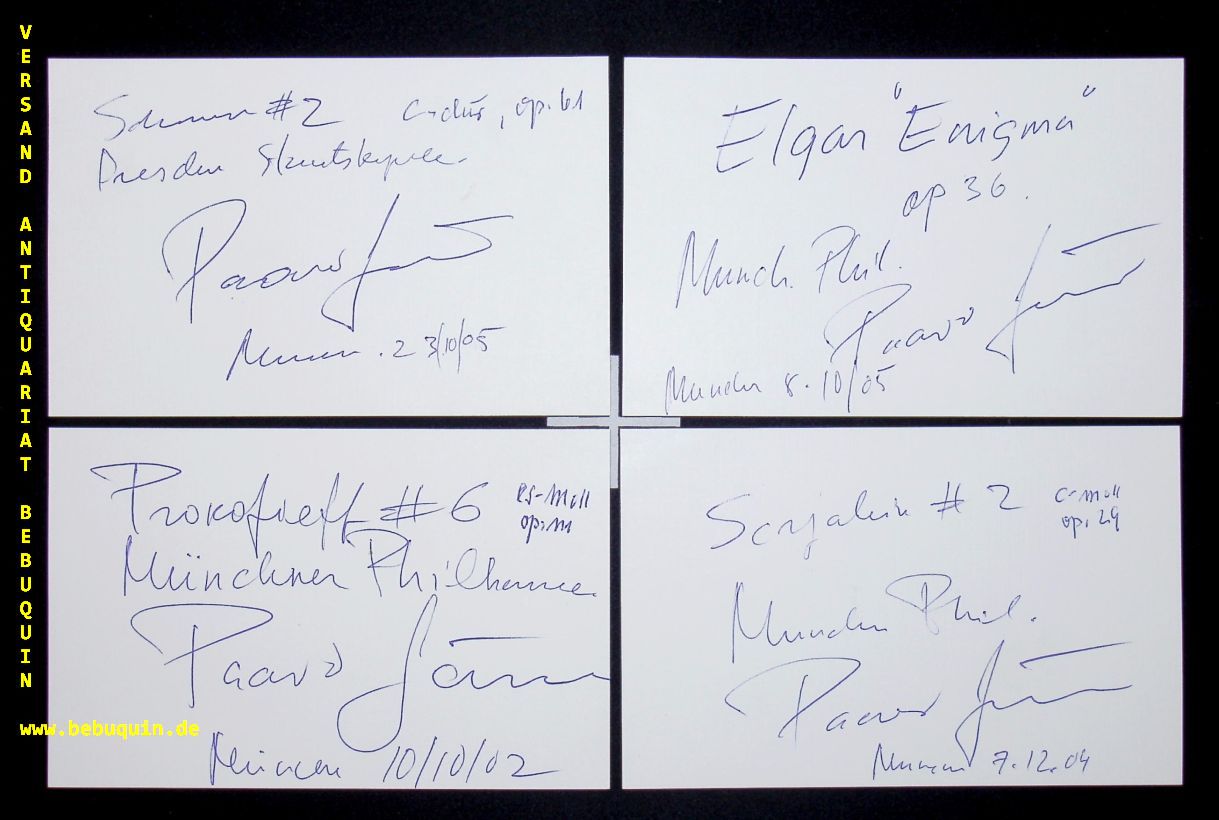 VERSAND ANTIQUARIAT BEBUQUIN
www.bebuquin.de
#2 C-dur, op. 61
Dresden
Paavo
23/10/05
Elgar "Enigma"
op 36.
Munch. Phil.
Paavo
8.10/05
Prokofieff #6 es-moll
op. 111
Münchner
Paavo Järvi
München 10/10/02
#2 c-moll
op. 29
Phil.
Paavo
7.12.04